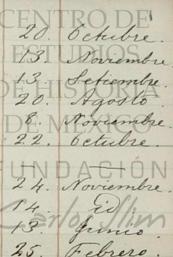 CENTRO DE
ESTUDIOS
DE HISTORIA
DE MÉXICO
FUNDACIÓN
Carlos Slim
20. Octubre.
13. Noviembre.
13. Setiembre.
20. Agosto
8. Noviembre
22. Octubre.
24. Noviembre.
14. Id.
13. Junio.
25. Febrero.